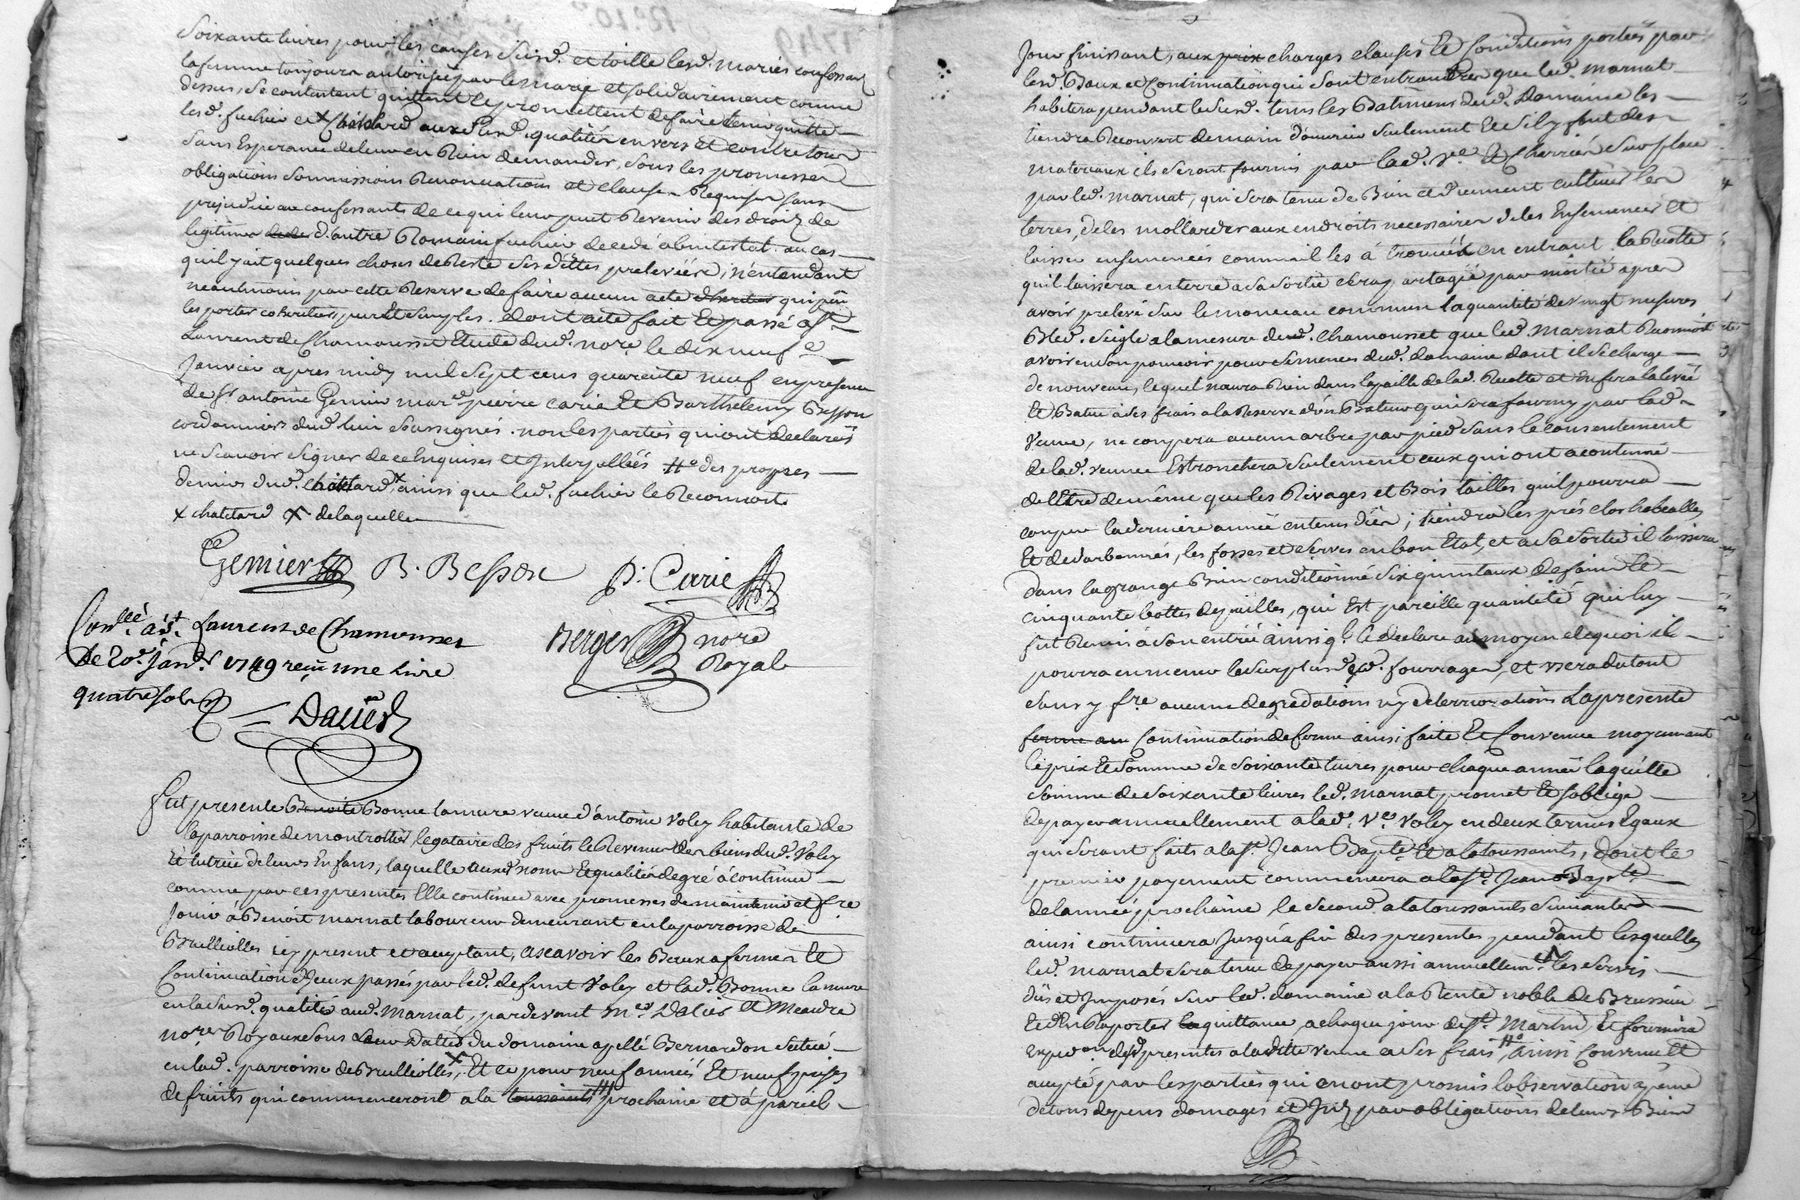 soixante livres pour les causes susd. et icelle lesd. mariés confessant
la femme toujours autorisée par le marié et solidairement comme
dessus, se contentent quittent et promettent de faire tenir quitte
lesd. fuchier et chattard auxd. susd. qualités envers et contre tous
sans Esperance de leur en Rien demander, sous les promesses
obligations soumissions Renonciations et clauses Requises sans
prejudice aux confessants de ce qui leur peut Revenir des droits de
legitimes d'autre Romain fuchier decedé abintestat. au cas
qu'il y ait quelques choses de Reste ses dettes prelevées, n'entendant
neantmoins par cette Reserve de faire aucun acte qui puisse
les porter coheritiers purs et simples. dont acte fait Et passé a St.
Laurent de Chamousset Etude dud. nore. le dix neuf e
Janvier apres midy mil sept cens quarente neuf en presence
de Sr antoine Gemier mard. pierre carie Et Barthelemy Besson
cordonniers dud. lieu soussignés. non les parties qui ont declarés
ne scavoir signer de ce Enquises et Interpellées # des propres
deniers dud. chattard x ainsi que led. fuchier le Reconnoit
x chattard x de laquelle
Gemier B. Besson P. Carie
Conllé a St. Laurent de Chamousset
le 20e. Janv. 1749 reçu une livre
quatre sols
Berger nore
Royal
Dalier
fut presente Benoite Bonne lamure veuve d'antoine Voley habitante de
la parroisse de montrottier legataire des fruits et Revenus des biens dud. Voley
Et tutrice de leurs Enfans, laquelle auxd. noms Et qualités de gré a continué
comme par ces presentes Elle continue avec promesses de maintenir et fre.
Jouir à Benoit marnat laboureur demeurant en la parroisse de
Brullioles icy present et acceptant, ascavoir les Beaux a fermes Et
Continuation d'yceux passés par led. defunt Voley et lad. Bonne lamure
en lad. susd. qualités aud. Marnat, pardevant Mes. Dalier Et Meadre
nores Royaux sous Leur Dattes du domaine apellé Bernardon scitué
en lad. parroisse de Brullioles x, Et ce pour neuf années Et neuf prises
de fruits qui commenceront a la toussaints # prochaine et à pareil
Jour finissant, aux prix charges clauses Et Conditions portées par
lesd. Baux et Continuation qui sont entre autres que led. marnat
habitera pendant led. susd. tems les Batimens dud. Domaine les
tiendra Recouvert de main d'ouvrier seulement Et s'il y faut des
materiaux ils seront fournis par lad. Ve. Et Charriés sur place
par led. marnat, qui sera tenu de Bien et duement cultiver les
terres, de les mollarder aux endroits necessaires de les Ensemencer et
laisser ensemencées comme il les á trouvéés en entrant la Recolte
qu'il laissera en terre a sa sortie sera partagée par moitié apres
avoir prelevé sur le monceau commun la quantité de vingt mesures
Bled. seigle a la mesure dud. Chamousset que led. Marnat Reconnoit
avoir en son pouvoir pour semences dud. domaine dont il se charge
de nouveau, lequel n'aura Rien dans la paille de lad. Recolte et En fera la levée
Et Batre à ses frais a la Reserve d'un Bateur qui sera fourny par lad.
Veuve, ne coupera aucun arbre par pied sans le consentement
de lad. veuve Et tronchera seulement ceux qui ont acoutumé
de l'Etre de même que les Rivages et Bois taillés qu'il pourra
couper la derniere année en tems dûs; tiendra les prés clos habealles
Et desarbonnés, les fosses et serves en bon Etat, et a sa sortie il laissera
Dans la grange Bien conditionné six quintaux de foin Et
cinquante bottes de pailles, qui Est pareille quantité qui luy
fut Remis à son entrée ainsi q. le declare au moyen de quoi il
pourra emmener le surplus desd. fourrages, et usera du tout
sans y fre. aucune degradations ny deterriorations La presente
ferme au Continuation de ferme ainsi faite Et Convenue moyennant
le prix Et somme de soixante livres pour chaque année laquelle
somme de soixante livres led. Marnat promet Et s'oblige
de payer annuellement a lad. Ve. Voley en deux termes Egaux
qui seront faits a la St. Jean Bapte. Et a la toussaints, dont le
premier payement commencera a la St. Jean Bapte.
de l'année prochaine, le second a la toussaints suivante
ainsi continuera jusqu'a fin des presentes, pendant lesquelles
led. marnat sera tenu de payer aussi annuellemt. les servis
dûs et Imposés sur led. domaine a la Rente noble de Brussieu
Et d'En Raporter la quittance a chaque jour de St. Martin, Et fournira
Expedon. des presentes a ladite veuve a ses frais # ainsi Convenu Et
accepté par les parties qui en ont promis l'observation a peine
de tous depens domages et Intz par obligations de leurs Biens